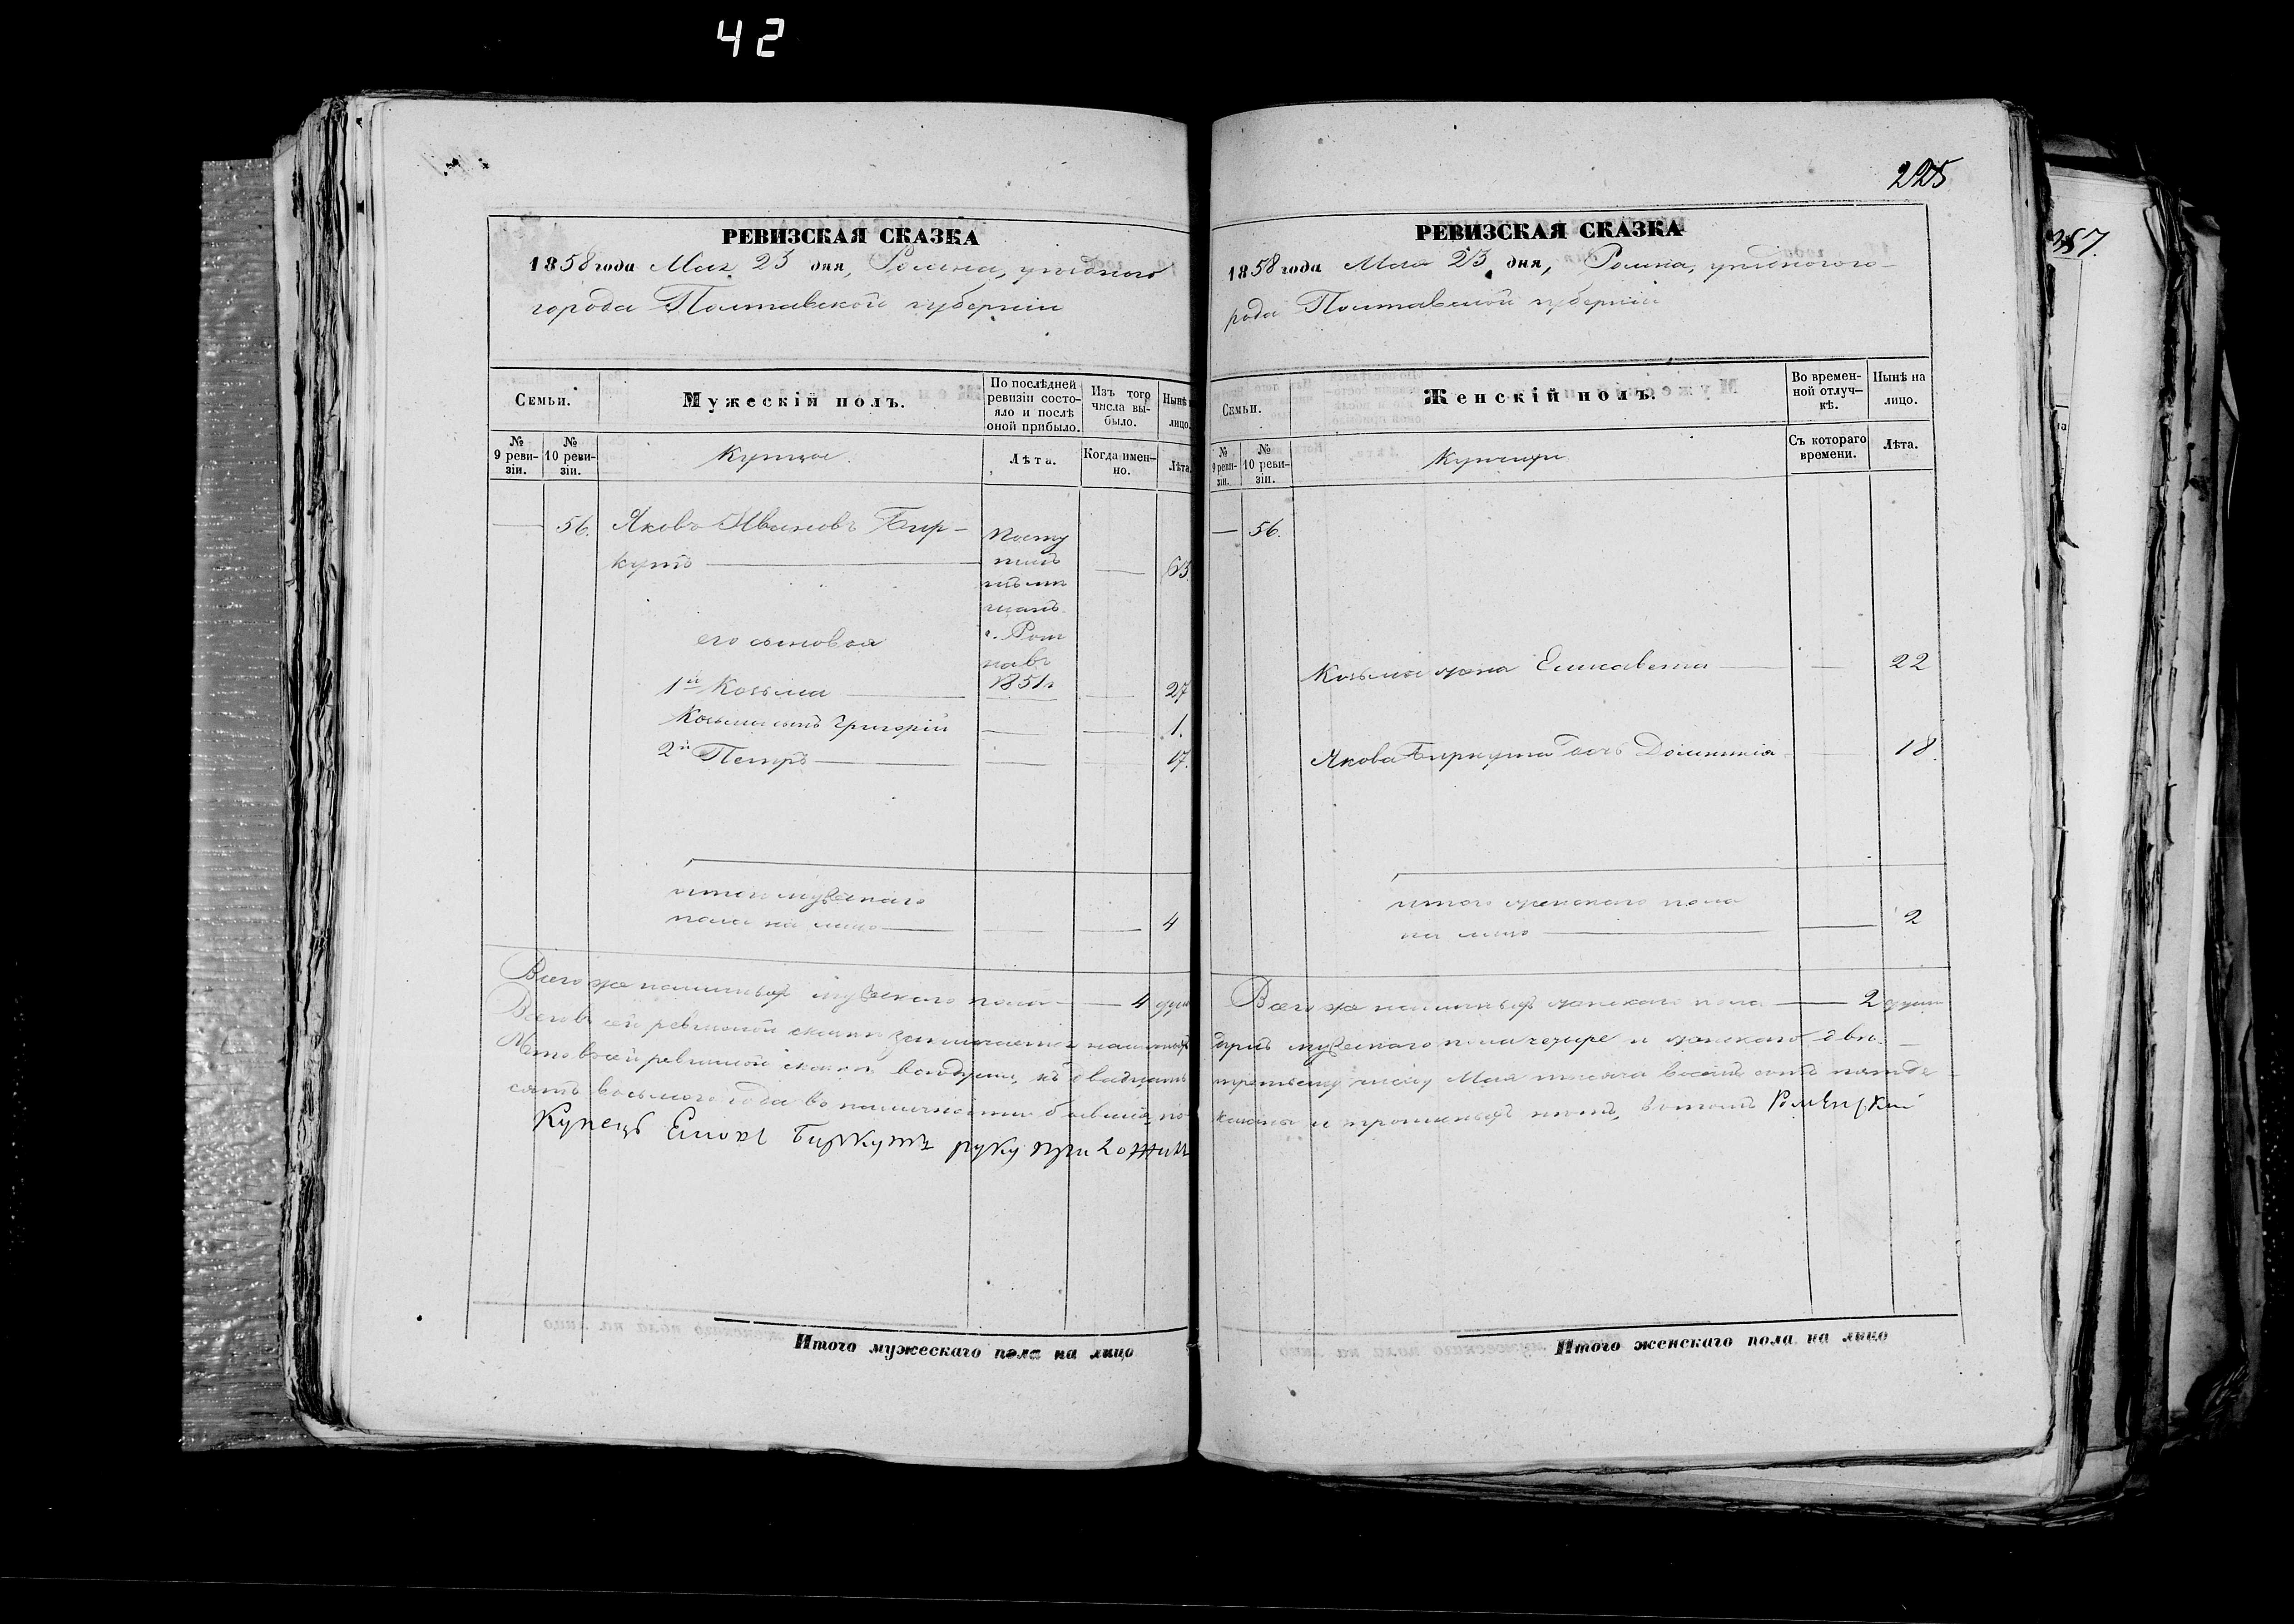 42
225
357.
РЕВИЗСКАЯ СКАЗКА
1858 года Мая 23 дня, Ромна, уѣзднаго
города Полтавской губерніи
Семьи.
Мужескій полъ.
По послѣдней
ревизіи состо-
яло и послѣ
оной прибыло.
Изъ того
числа вы-
было.
Нынѣ
лицо.
№
9 реви-
зіи.
№
10 реви-
зіи.
Купцы
Лѣта.
Когда имен-
но.
Лѣта.
56. Яковъ Ивановъ Бир-
кутъ 63.
Посту
пилъ
изъ мѣ
щанъ
г. Ром
новъ
1851
его сыновья
1й Козьма 27
Козьмы сынъ Григорій 1.
2й Петръ 17.
итого мужескаго
пола на лицо 4
Всего же наличныхъ мужескаго пола 4 душ
Всего въ сей ревизской сказкѣ заключается наличныхъ
Что въ сей ревизской сказкѣ всѣ души, къ двадцать
сятъ восьмого года въ наличности бывшія, по
Купецъ Биркутъ руку приложилъ
РЕВИЗСКАЯ СКАЗКА
1858 года Мая 23 дня, Ромна, уѣзднаго го-
рода Полтавской губерніи
Семьи.
Женскій полъ.
Во времен-
ной отлуч-
кѣ.
Нынѣ на
лицо.
№
9 реви-
зіи.
№
10 реви-
зіи.
Купчихи
Съ котораго
времени.
Лѣта.
56.
Козьмы жена Елисавета 22
Якова Биркута дочь Домникія 18.
итого женскаго пола
на лицо 2
Всего же наличныхъ женскаго пола 2 души
душъ мужескаго пола четыре и женскаго двѣ.
третьему числу Мая тысяча восемь сотъ пятьде
казаны и прописныхъ нѣтъ, въ томъ Роменскій
Итого мужескаго пола на лицо
Итого женскаго пола на лицо